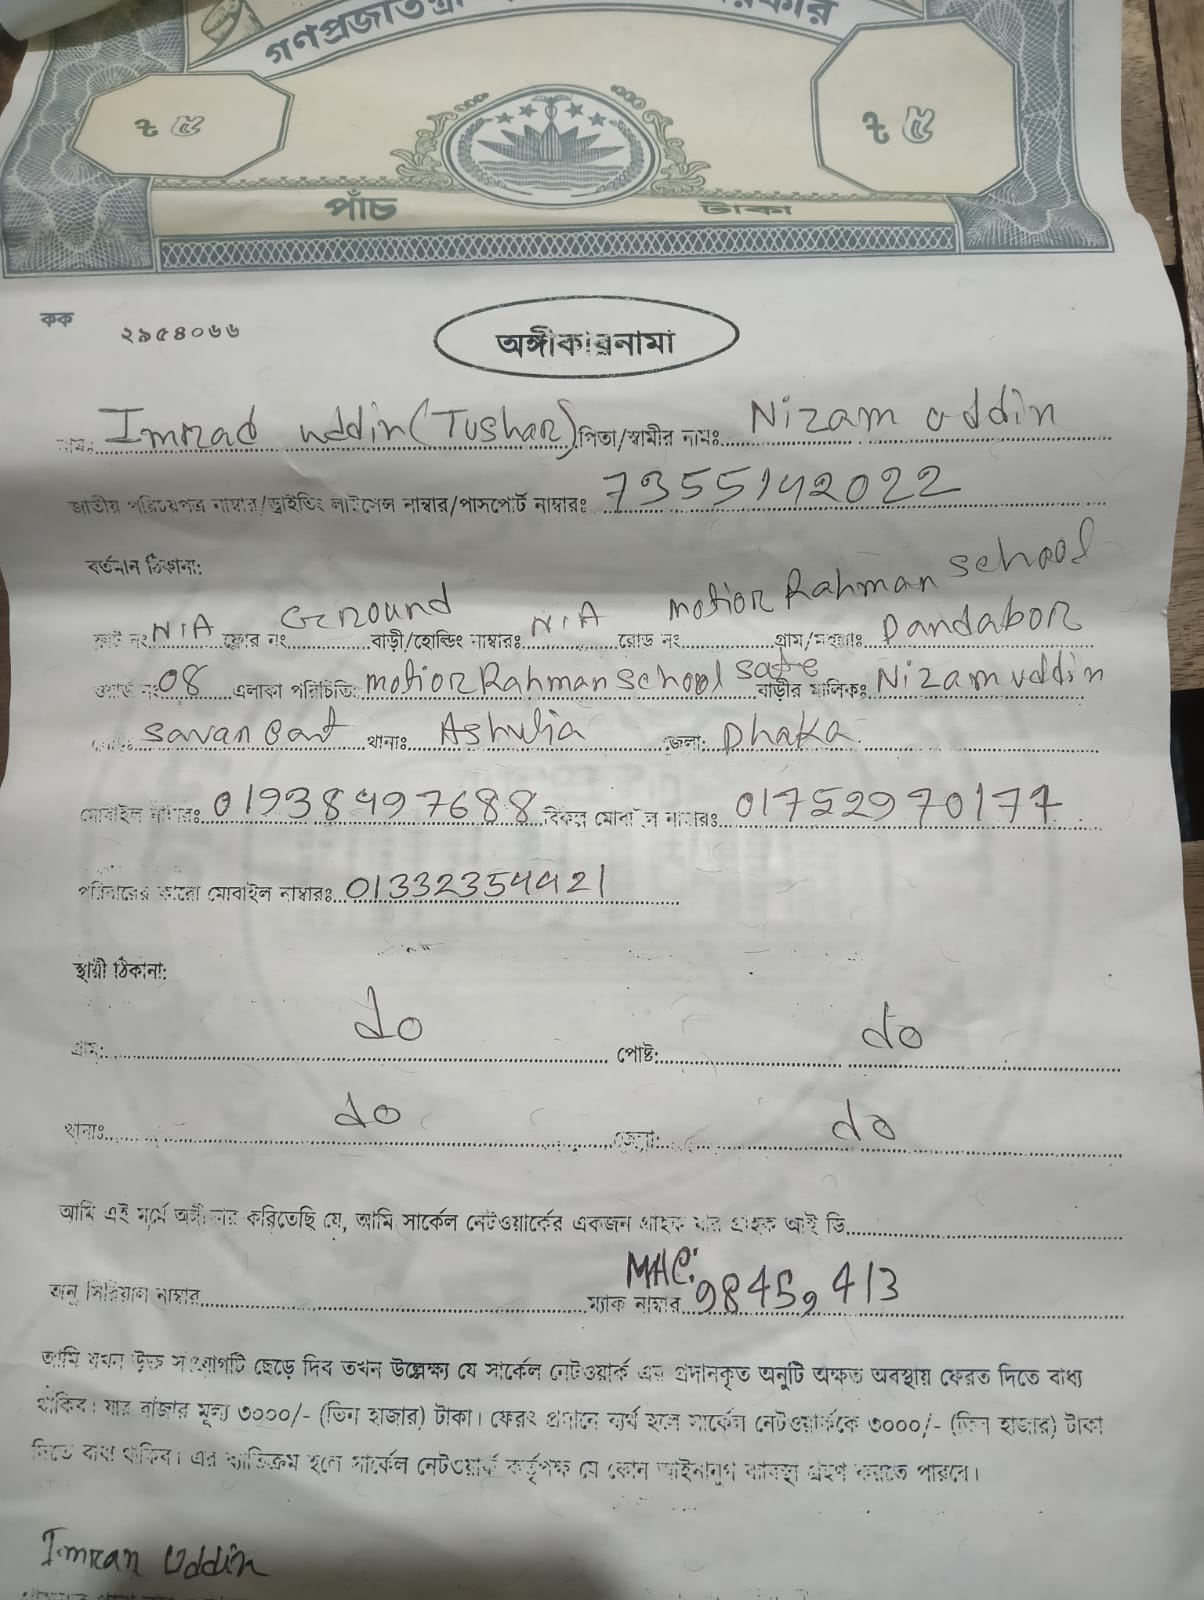 গণপ্রজাতন্ত্রী
৳ ৫ ৳ ৫
পাঁচ টাকা
কক ২৯৫৪০৬৬
অঙ্গীকারনামা
নামঃ Imrad uddin (Tushar) পিতা/স্বামীর নামঃ Nizam uddin
জাতীয় পরিচয়পত্র নাম্বার/ড্রাইভিং লাইসেন্স নাম্বার/পাসপোর্ট নাম্বারঃ 7355142022
বর্তমান ঠিকানা:
ফ্লাট নং N/A ফ্লোর নং Ground বাড়ী/হোল্ডিং নাম্বারঃ N/A রোড নং motior Rahman school গ্রাম/মহল্লাঃ Dandabor
ওয়ার্ড নং 08 এলাকা পরিচিতি: motior Rahman school বাড়ীর মালিকঃ Nizam uddin
savar cant থানাঃ Ashulia জেলা: Dhaka
মোবাইল নাম্বারঃ 01938497688 বিকল্প মোবাইল নাম্বারঃ 01752970177
পরিবারের কারো মোবাইল নাম্বারঃ 01332354421
স্থায়ী ঠিকানা:
গ্রাম: do পোষ্ট: do
থানাঃ do জেলা: do
আমি এই মর্মে অঙ্গীকার করিতেছি যে, আমি সার্কেল নেটওয়ার্কের একজন গ্রাহক যার গ্রাহক আই ডি
অনু সিরিয়াল নাম্বার ম্যাক নাম্বার MAC: 98459413
আমি যখন উক্ত সংযোগটি ছেড়ে দিব তখন উল্লেক্ষ্য যে সার্কেল নেটওয়ার্ক এর প্রদানকৃত অনুটি অক্ষত অবস্থায় ফেরত দিতে বাধ্য
থাকিব। যার বাজার মূল্য ৩০০০/- (তিন হাজার) টাকা। ফেরৎ প্রদানে ব্যর্থ হলে সার্কেল নেটওয়ার্ককে ৩০০০/- (তিন হাজার) টাকা
দিতে বাধ্য থাকিব। এর ব্যাতিক্রম হলে সার্কেল নেটওয়ার্ক কর্তৃপক্ষ যে কোন আইনানুগ ব্যাবস্থা গ্রহণ করতে পারবে।
Imran Uddin